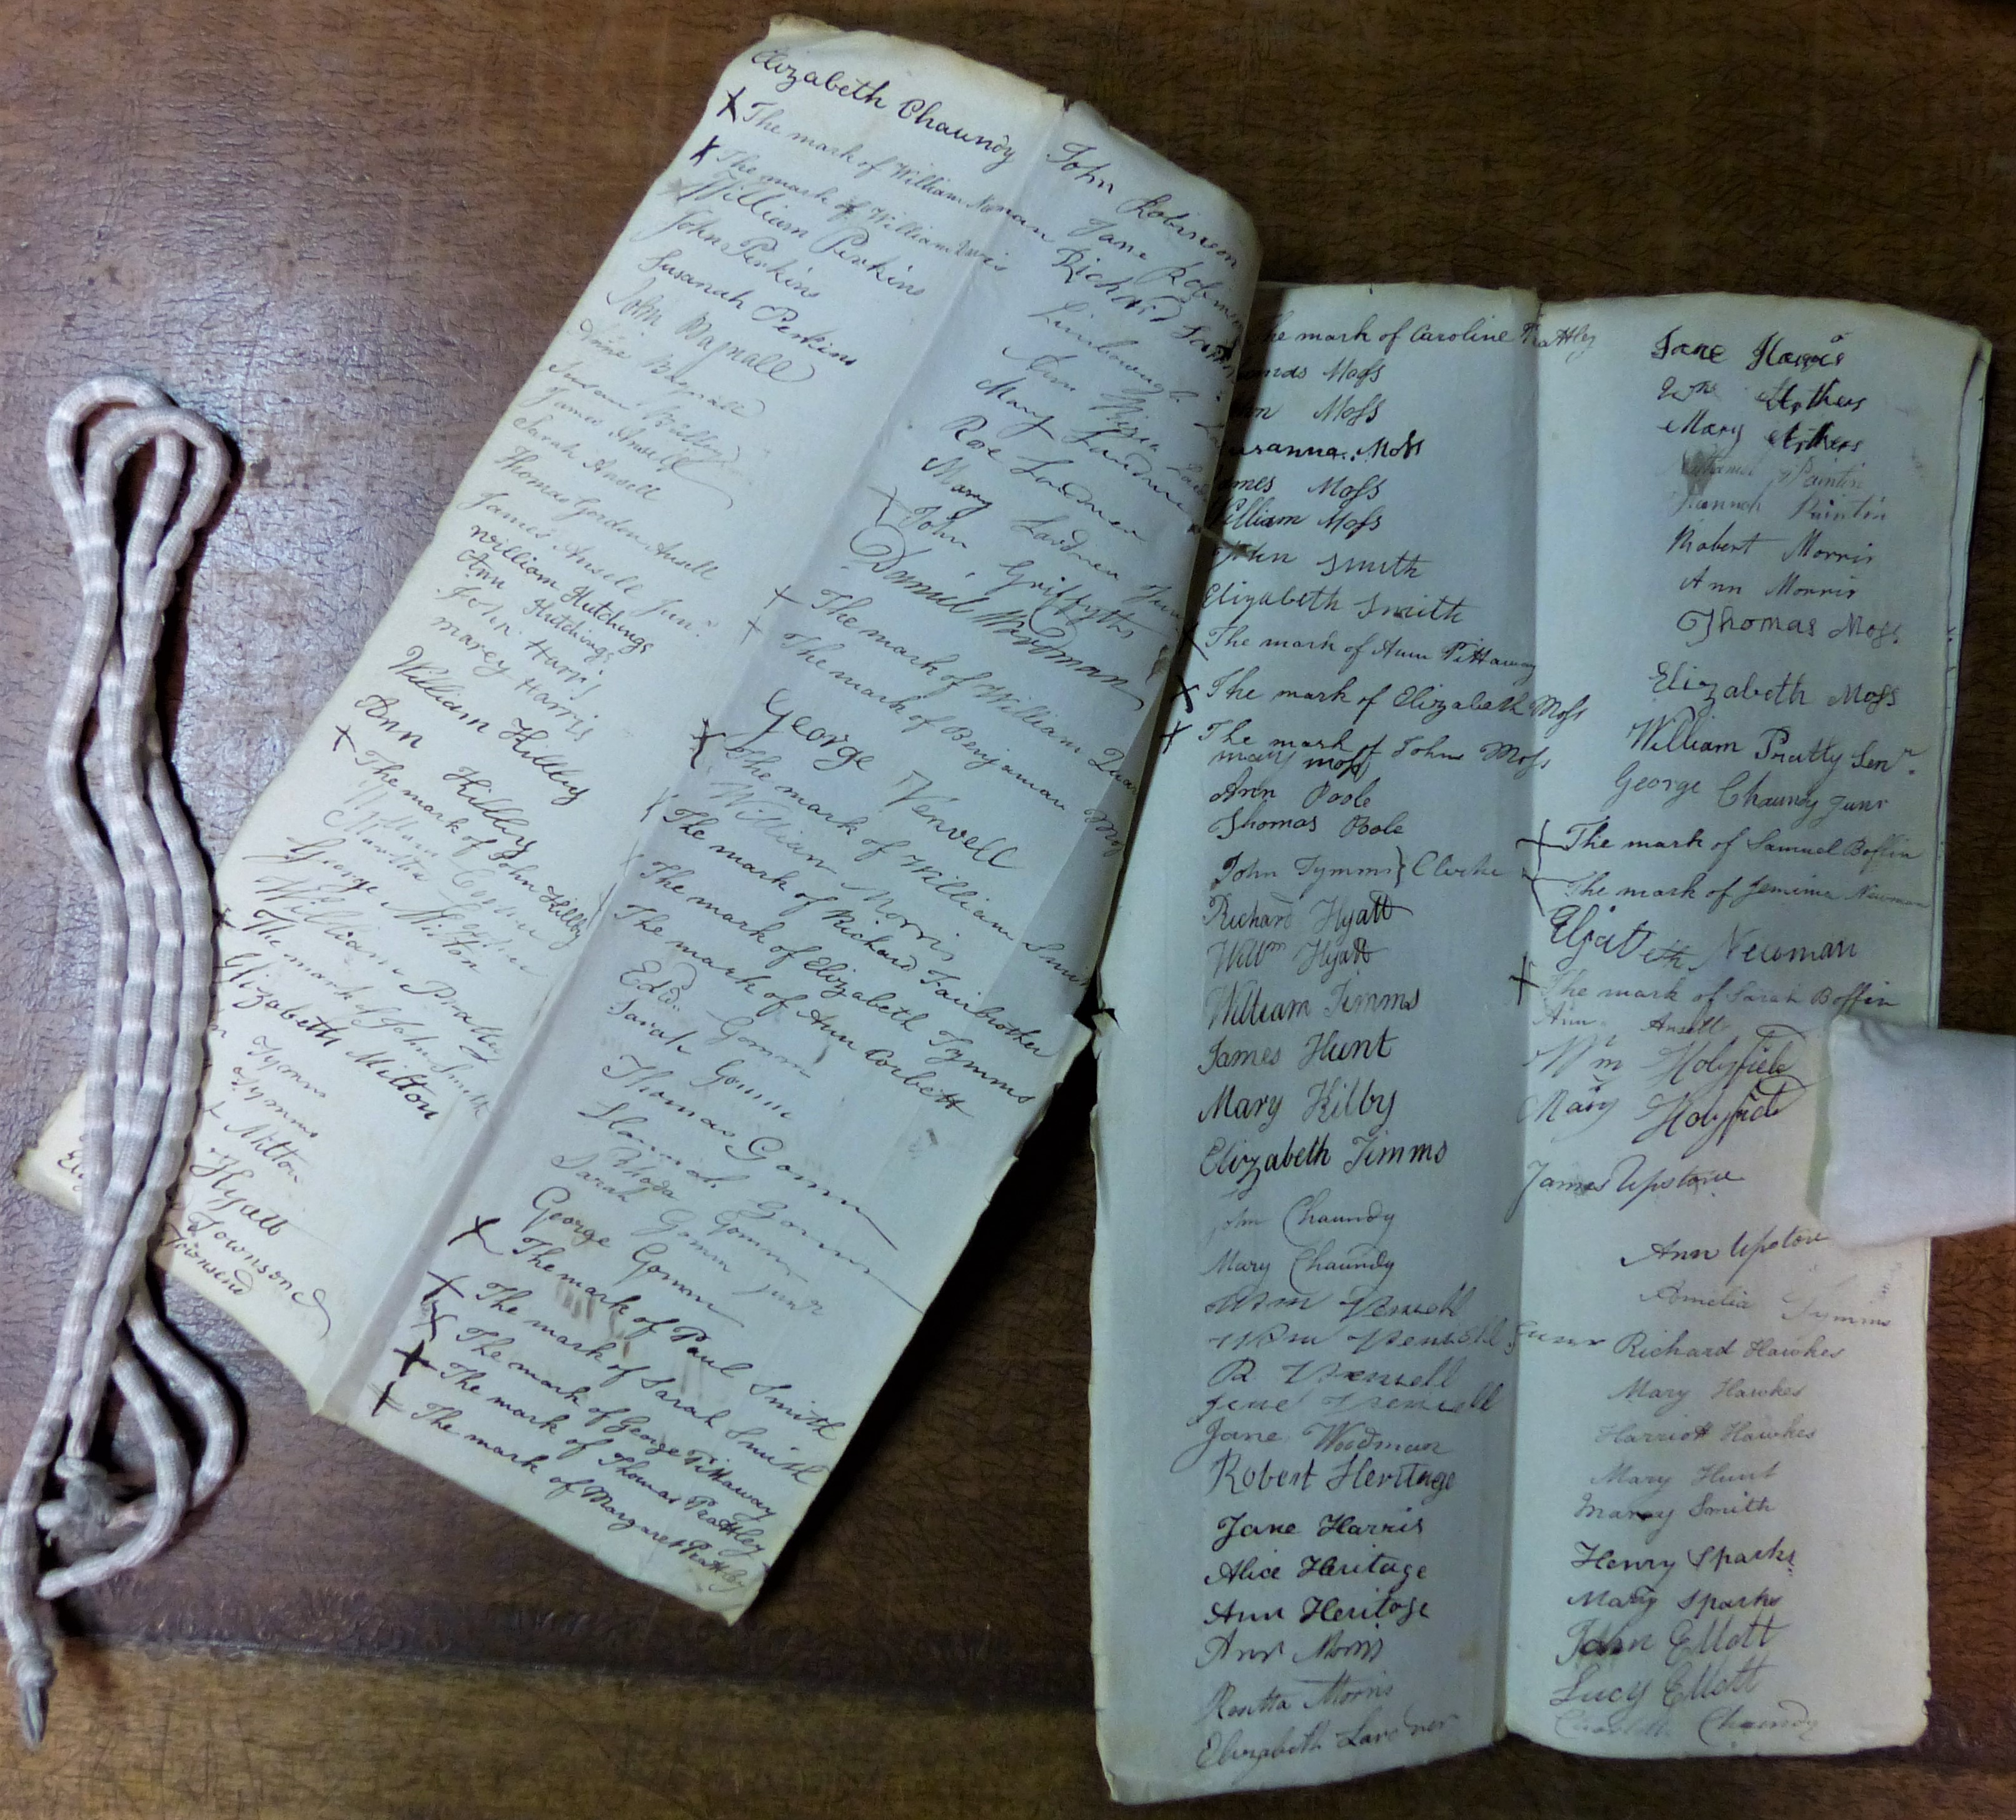 Elizabeth Chaundy
The mark of William
The mark of William
William Perkins
John Perkins
Susanah Perkins
John Bagnall
Anne Bagnall
Susan
James Ansell
Sarah Ansell
Thomas Gorden Ansell
James Ansell Junr
William Hutchings
Ann Hutchings
John Harris
marey Harris
William Hilley
Ann Hilley
The mark of John Hilby
George Milton
William Prattley
The mark of John Smith
Elizabeth Milton
Tymms
Tymms
Milton
Hyatt
Townsend
Townsend
John Robinson
Jane
Richard
Ann
Mary Lardner
Roe Lardner
Mary Lardner Junr
John Griffyths
Daniel Woodman
The mark of William
The mark of Benjaman
George Venvell
The mark of William Smith
William Morris
The mark of Richard Fairbrother
The mark of Elizabeth Tymms
The mark of Ann Corbett
Edwd. Gomm
Sarah Gomm
Thomas Gomm
Hannah Gomm
Rhoda Gomm
Sarah Gomm junr
George Gomm
The mark of Paul Smith
The mark of Sarah Smith
The mark of George Pittaway
The mark of Thomas Prattley
The mark of Margaret Prattley
he mark of Caroline Prattley
omas Moss
Moss
usanna. Moss
mes Moss
William Moss
John Smith
Elizabeth Smith
The mark of Ann Pittaway
The mark of Elizabeth Moss
The mark of John Moss
mary moss
Ann Poole
Thomas Poole
John Tymms } Clerke
Richard Hyatt
Willm Hyatt
William Timms
James Hunt
Mary Kilby
Elizabeth Timms
John Chaundy
Mary Chaundy
Wm Venvell
Wm Venvell Junr
R Venvell
Jane Venvell
Jane Woodman
Robert Heritage
Jane Harris
Alice Heritage
Ann Heritage
Ann Morris
Rosetta Morris
Elizabeth Lardner
Jane Harris
Wm Arthers
Mary Arthers
Paintin
Hannah Paintin
Robert Morris
Ann Morris
Thomas Moss
Elizabeth Moss
William Pratty Senr.
George Chaundy Junr
The mark of Samuel Boffin
The mark of Jemima Newman
Elizabeth Newman
The mark of Sarah Boffin
Ann Ansell
Wm Holyfield
Mary Holyfield
James Upstone
Ann Upstone
Amelia Tymms
Richard Hawkes
Mary Hawkes
Harriott Hawkes
Mary Hunt
Marey Smith
Henry Sparks
Mary Sparks
John Ellott
Lucy Ellott
Chaundy